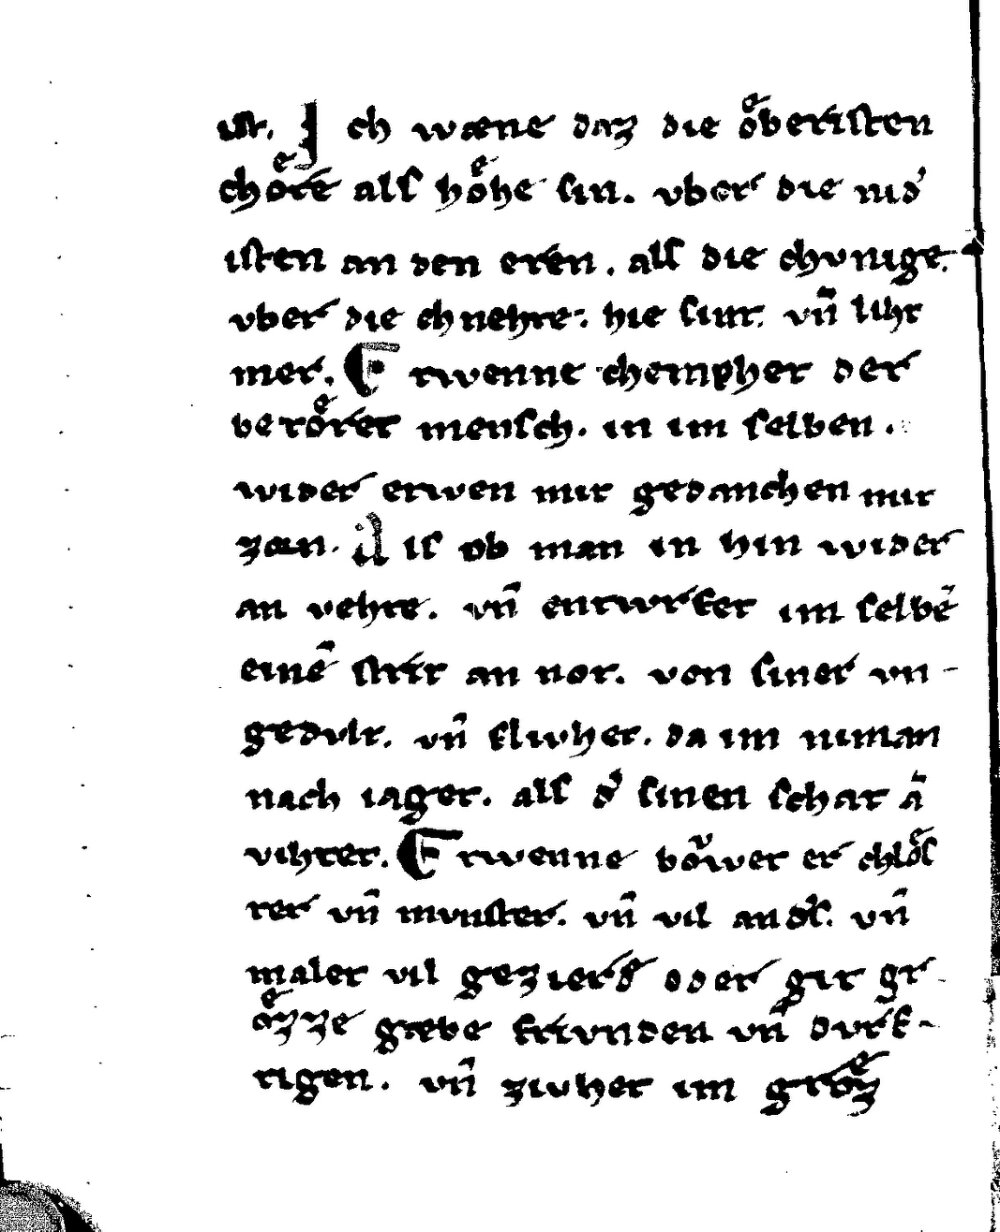 ist. Ich wæne daz die oͤberisten
choͤre als hoͤhe sin. vber die nid᾽
isten an den eren. als die chvnige.
vber die chnehte. hie sint. vn̄ liht
mer. Etwenne chempher der
betoͤret mensch. in im selben.
wider etwen mit gedanchen mit
zorn. Als ob man in hin wider
an vehte. vn̄ entwrket im selbē
einē strit an not. von siner vn-
gedvlt. vn̄ klivhet. da im niman
nach iaget. als d᾽ sinen schat ā
vihtet. Etwenne boͮwet er chloͤs
ter vn̄ mvnster. vn̄ vil and᾽s. vn̄
malet vil gezierd oder git gr-
oͤzze gæbe frivnden vn̄ dvrf-
tigen. vn̄ zivhet im groͤz